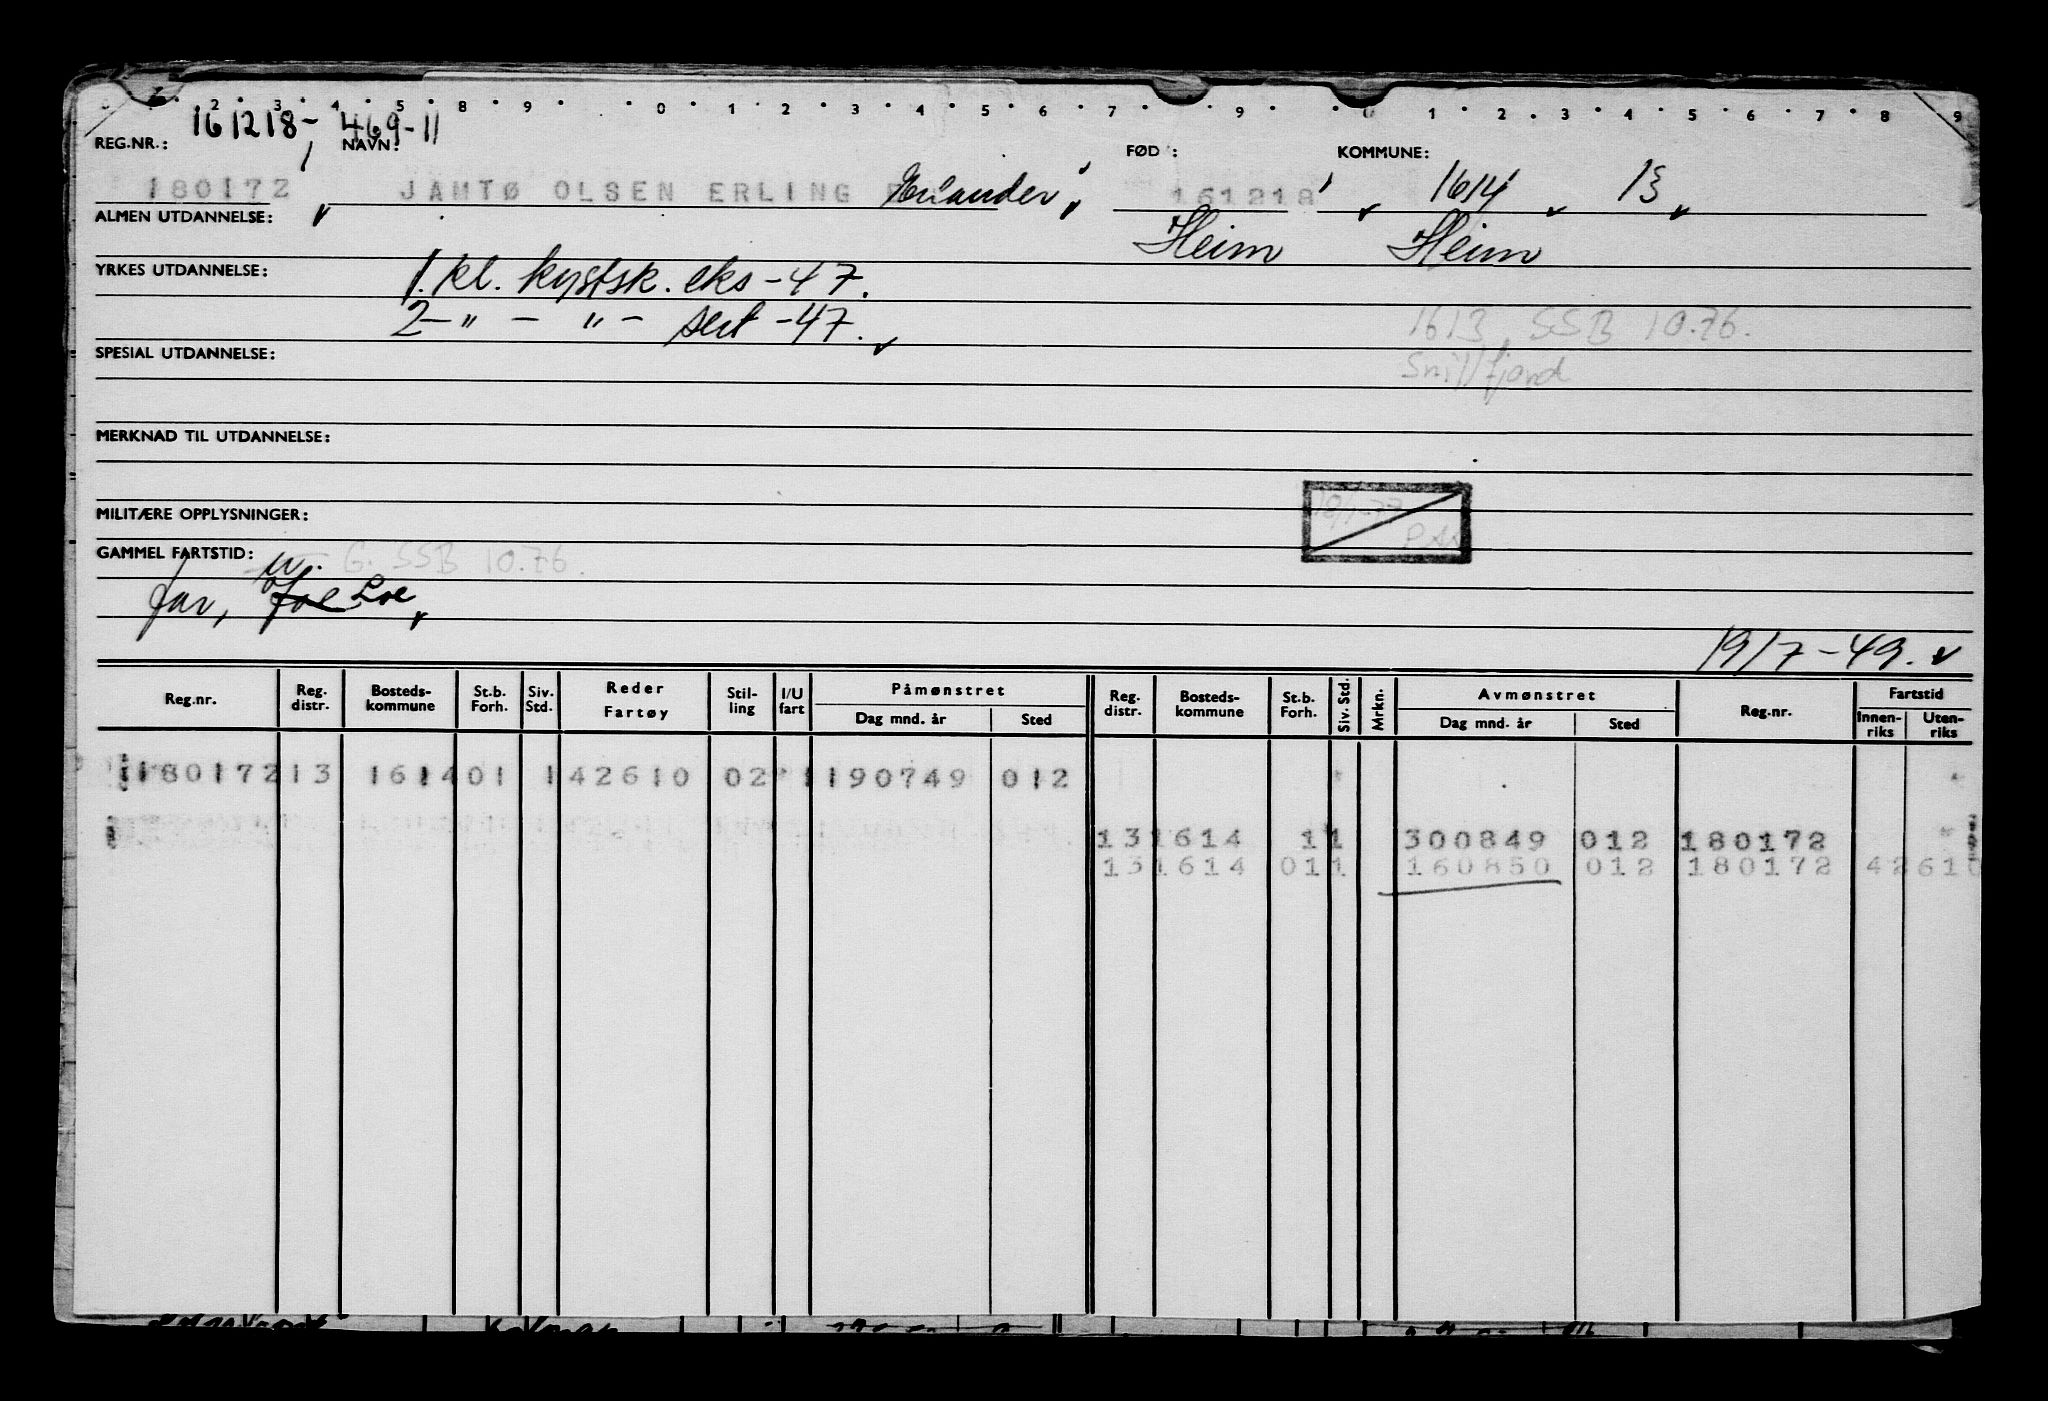 2 3 4 5 8 9 0 1 2 3 4 5 6 7 9 0 1 2 3 4 5 6 7 8 9
161218- 469-11
REG.NR.: NAVN: FØD: KOMMUNE:
180172 JAMTØ OLSEN ERLING Erlander 161218 1614 13
ALMEN UTDANNELSE: Heim Heim
YRKES UTDANNELSE: 1. kl. kystsk. eks -47.
2 - " - " - sert -47.
1613 SSB 10.76.
SPESIAL UTDANNELSE:
Snillfjord
MERKNAD TIL UTDANNELSE:
MILITÆRE OPPLYSNINGER:
18/1-77
GAMMEL FARTSTID: G. SSB 10.76.
far, Joe Loe
19/7-49.
Reg.nr. Reg. distr. Bosteds-kommune St.b. Forh. Siv. Std. Reder Fartøy Stil-ling I/U fart Påmønstret Dag mnd. år Sted Reg. distr. Bosteds-kommune St.b. Forh. Siv. Std. Mrkn. Avmønstret Dag mnd. år Sted Reg.nr. Fartstid Innen-riks Uten-riks
180172 13 1614 01 1 42610 02 1 190749 012
13 1614 1 1 300849 012 180172
13 1614 01 1 160850 012 180172 42610